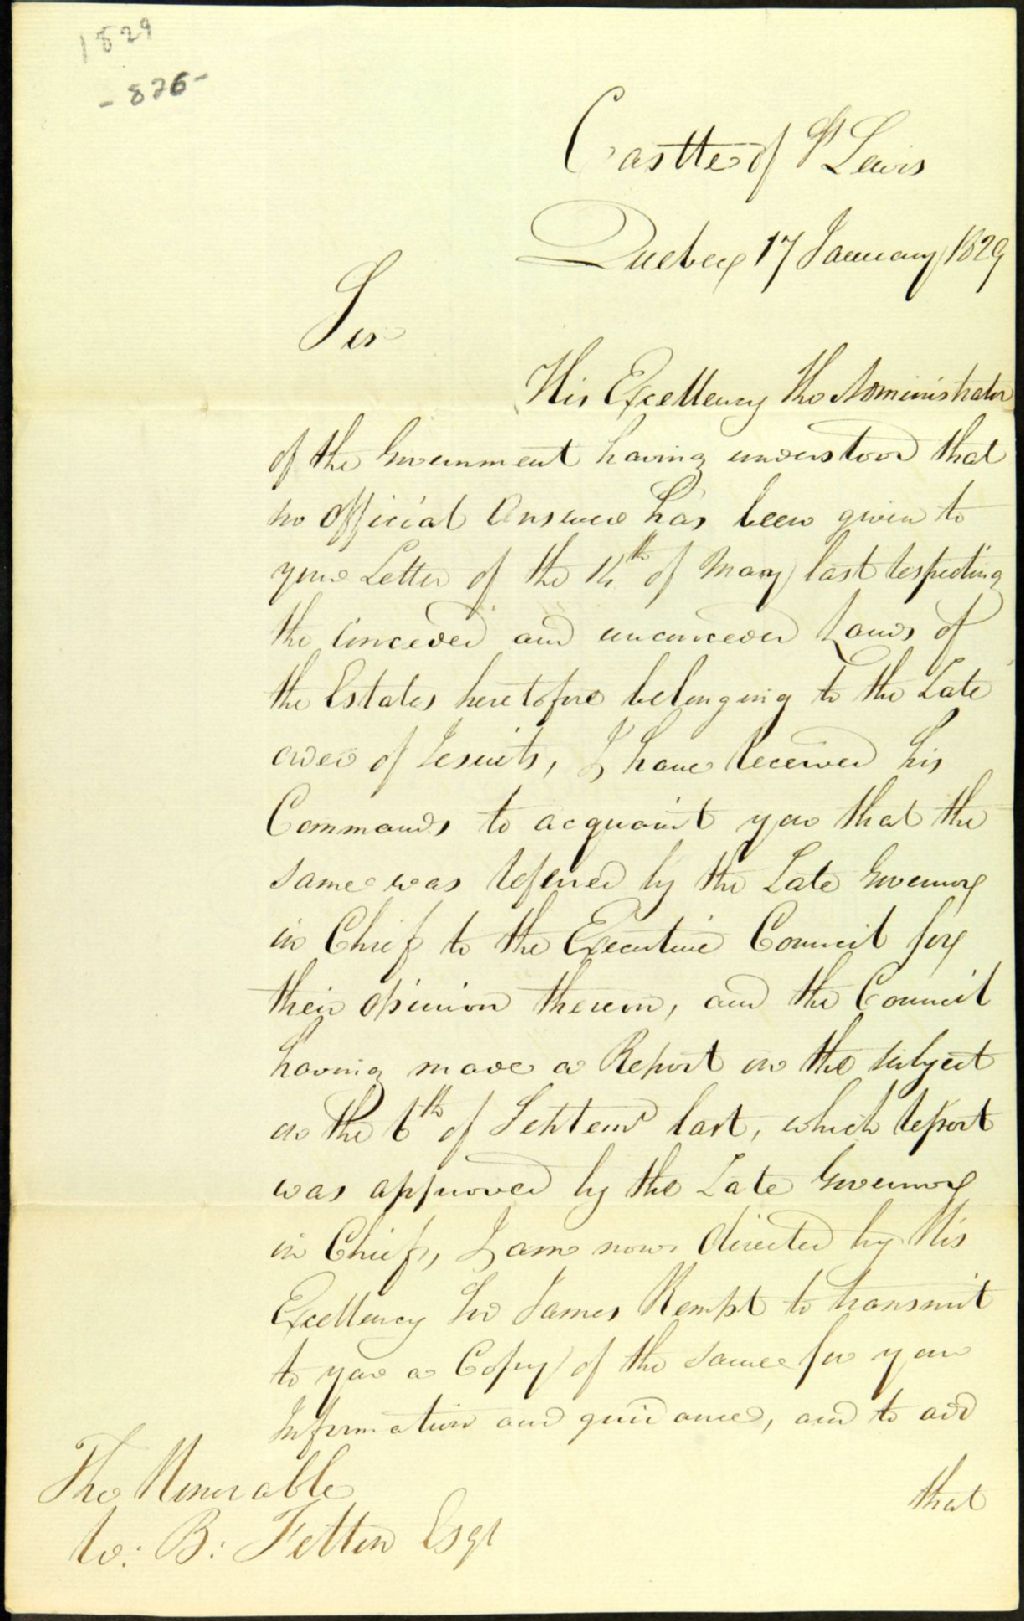 1829
- 826 -
Castle of St Lewis
Quebec 17 January 1829
Sir
His Excellency the Administrator
of the Government having understood that
no official Answer has been given to
your Letter of the 14th of May last respecting
the Conceded and unconceded Lands of
the Estates heretofore belonging to the Late
order of Jesuits, I have received his
Commands to acquaint you that the
same was referred by the Late Governor
in Chief to the Executive Council for
their opinion thereon, and the Council
having made a Report on the subject
on the 6th of Septemr last, which report
was approved by the Late Governor
in Chief, I am now directed by His
Excellency Sir James Kempt to transmit
to you a Copy of the same for your
Information and guidance, and to add
that
The Honorable
W: B: Felton Esqr